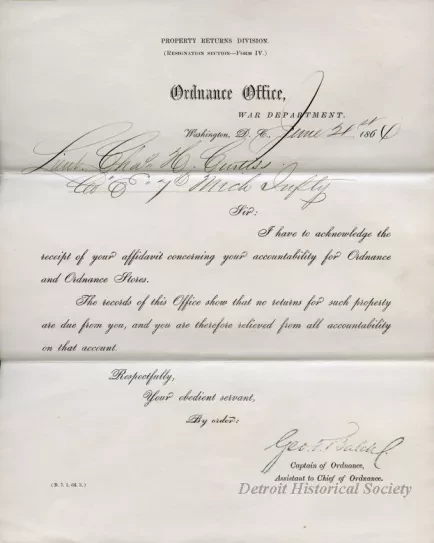 PROPERTY RETURNS DIVISION.
(RESIGNATION SECTION—FORM IV.)
Ordnance Office,
WAR DEPARTMENT.
Washington, D. C., June 21st 1864
Lieut. Chas. H. Curtiss.
Co "E" 7th Mich Infty
Sir:
I have to acknowledge the
receipt of your affidavit concerning your accountability for Ordnance
and Ordnance Stores.
The records of this Office show that no returns for such property
are due from you, and you are therefore relieved from all accountability
on that account.
Respectfully,
Your obedient servant,
By order:
Geo. T. Balch
Captain of Ordnance,
Assistant to Chief of Ordnance.
Detroit Historical Society